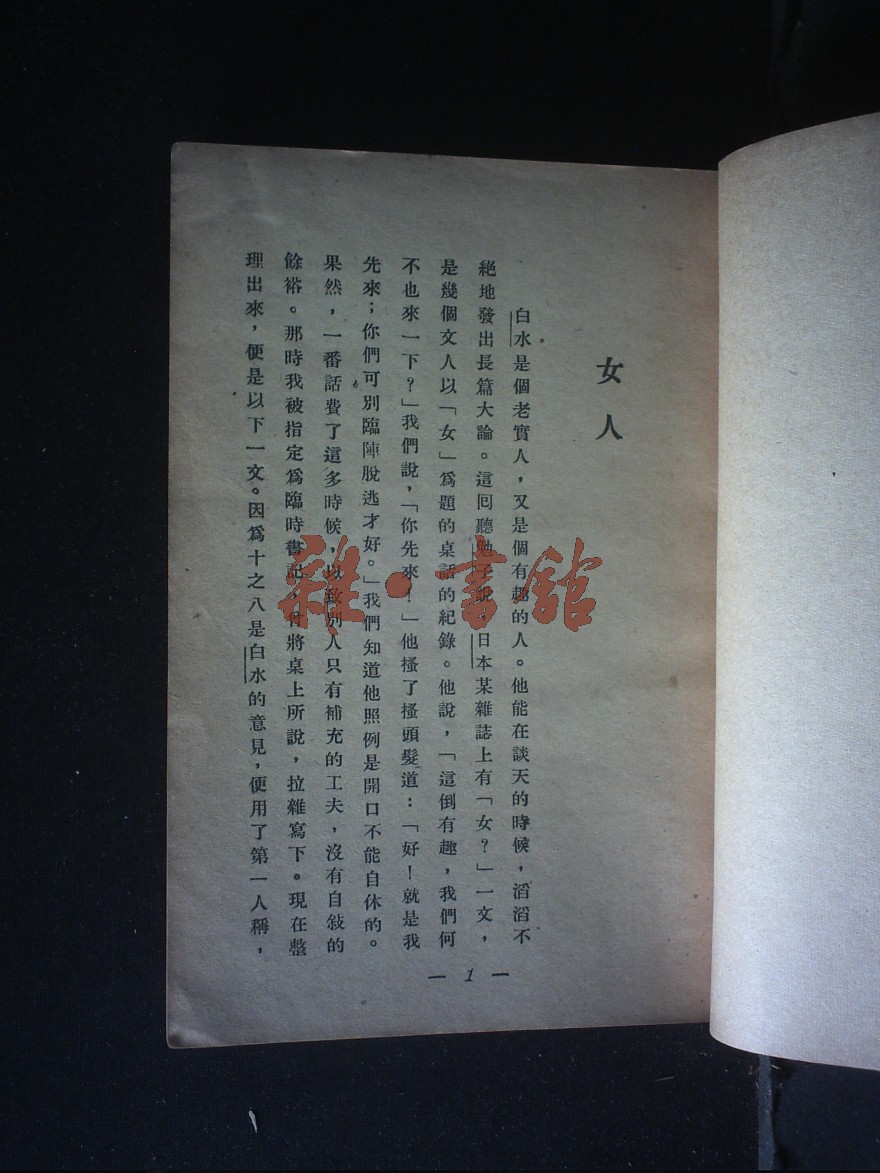 女人
白水是個老實人，又是個有趣的人。他能在談天的時候，滔滔不
絕地發出長篇大論。這囘聽勉子說，日本某雜誌上有「女？」一文，
是幾個文人以「女」爲題的桌話的紀錄。他說，「這倒有趣，我們何
不也來一下？」我們說，「你先來！」他搔了搔頭髮道：「好！就是我
先來；你們可別臨陣脫逃才好。」我們知道他照例是開口不能自休的。
果然，一番話費了這多時候，以致別人只有補充的工夫，沒有自敍的
餘裕。那時我被指定爲臨時書記，曾將桌上所說，拉雜寫下。現在整
理出來，便是以下一文。因爲十之八是白水的意見，便用了第一人稱，
— 1 —
雜·書館